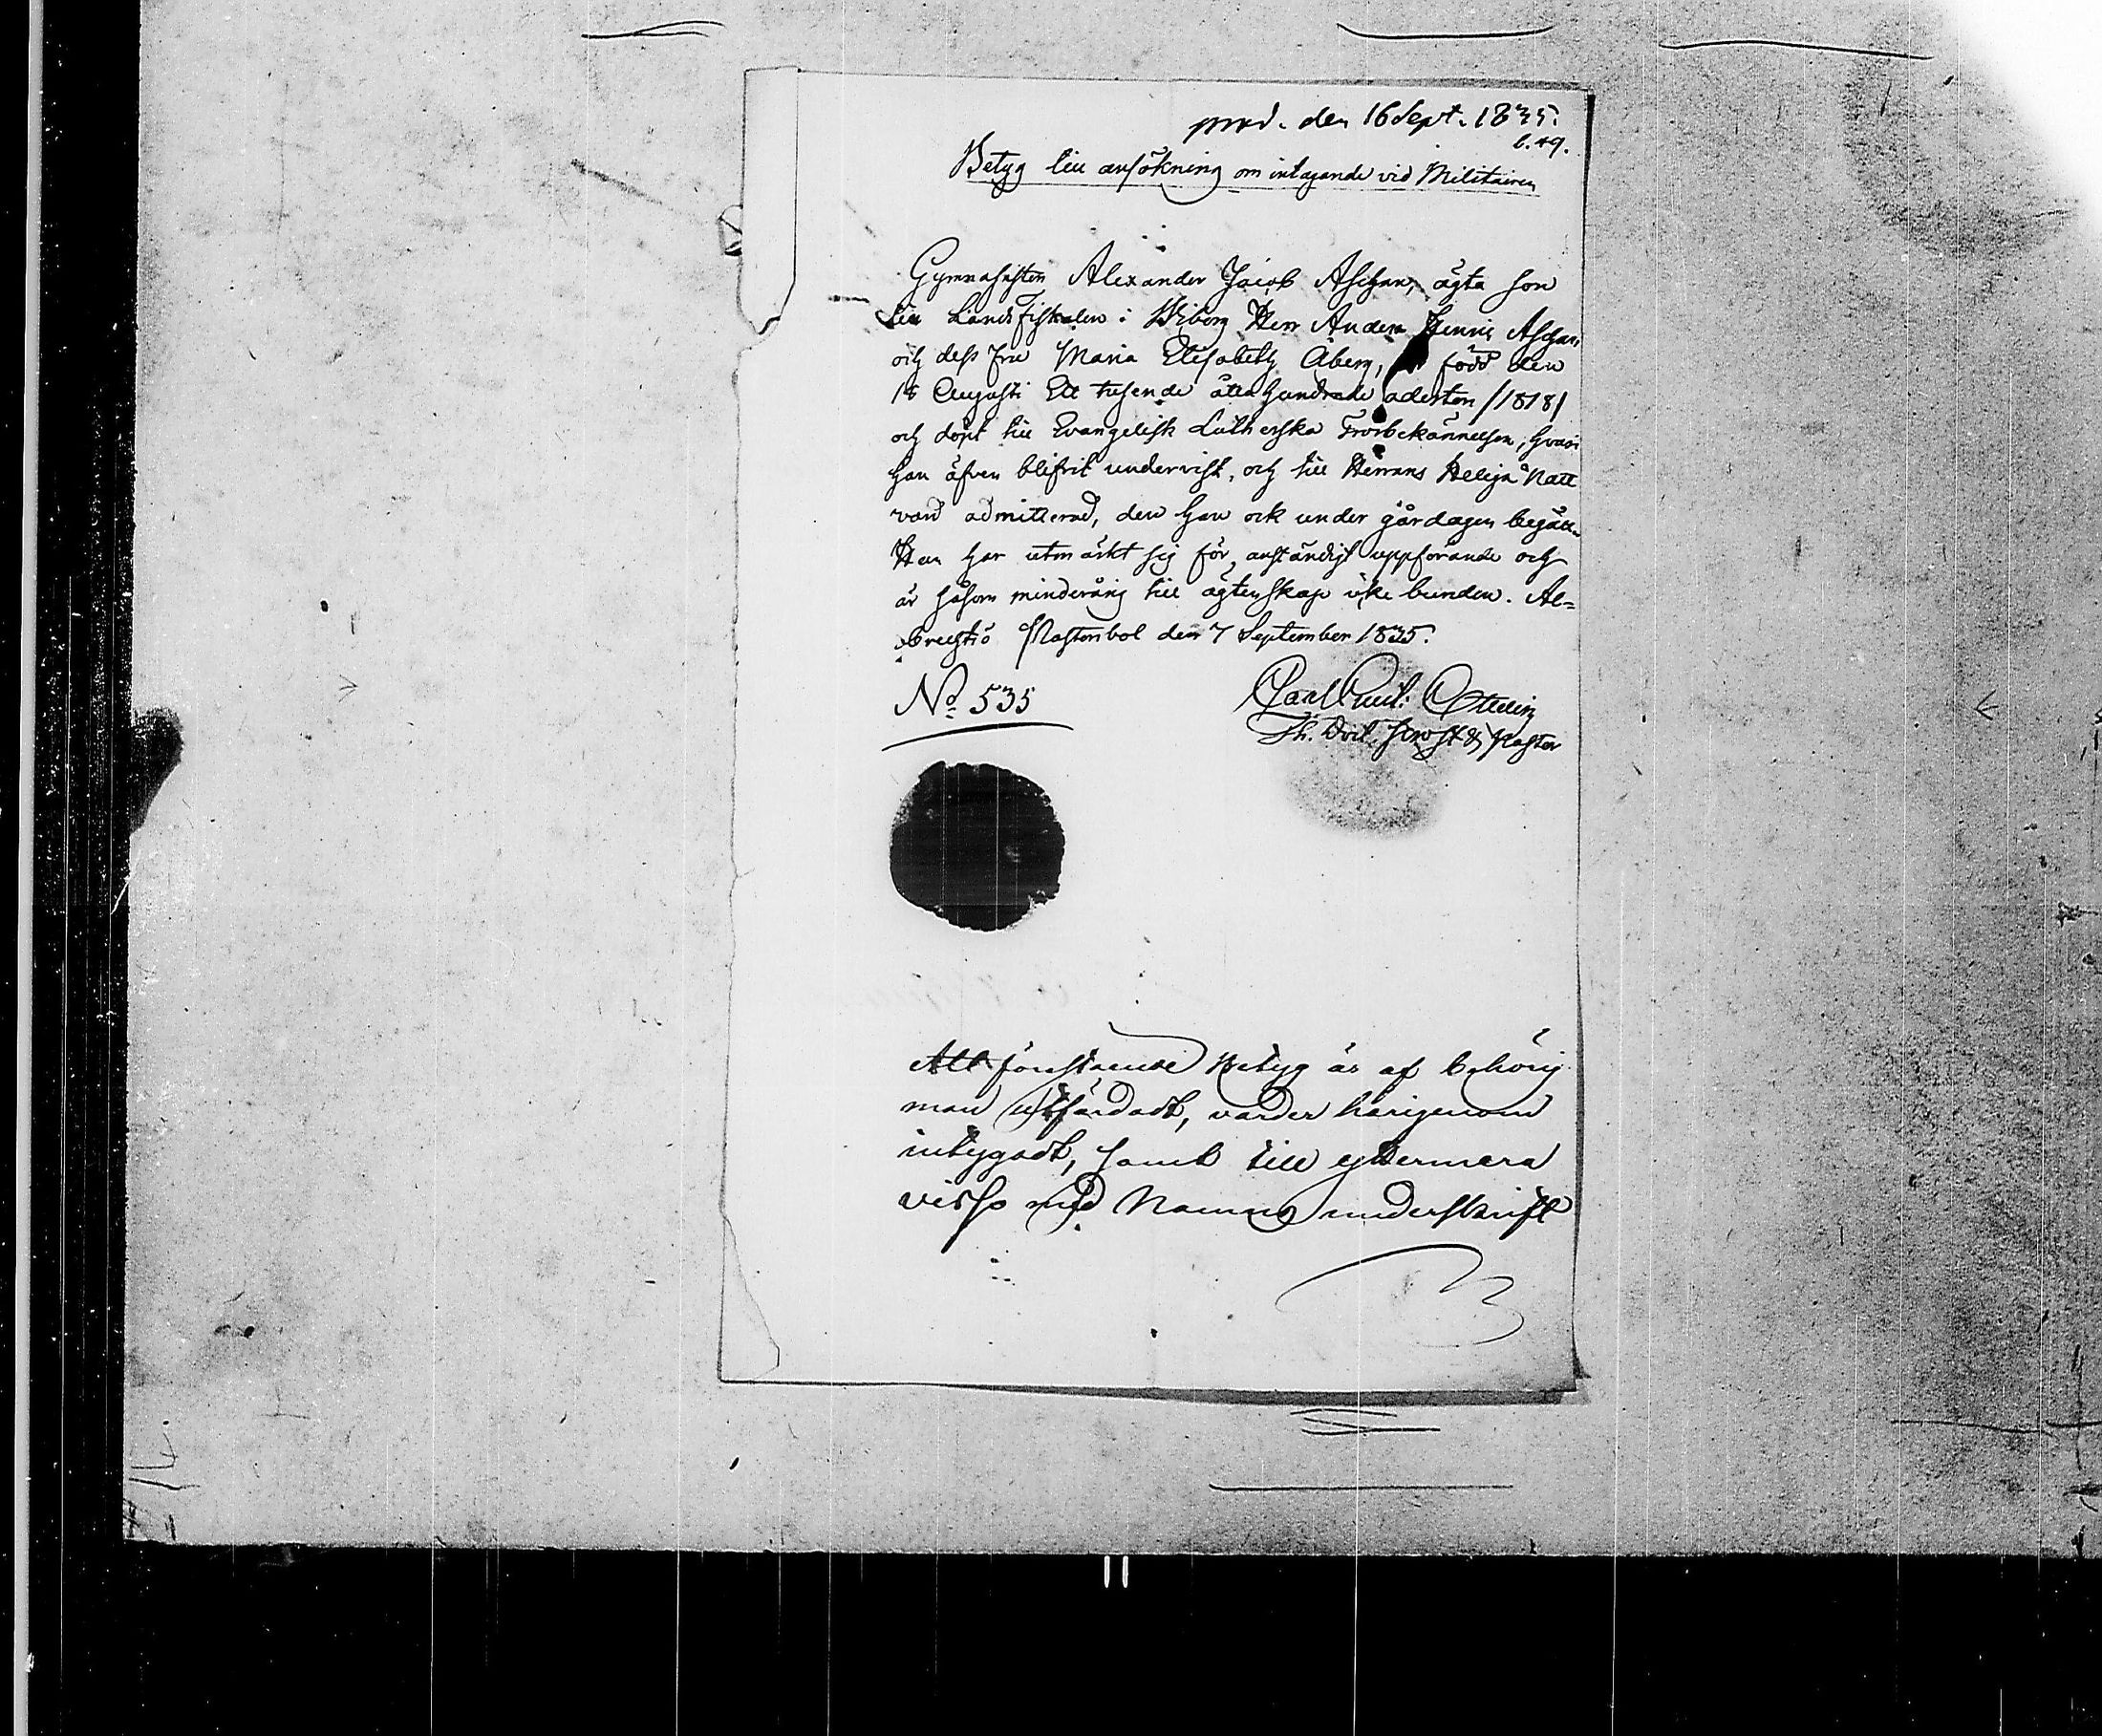 prod. den 16 Sept. 1835.
b. 49.
Betyg till ansökning om intagande vid Militairen
Gymnasisten Alexander Jacob Aschan, ägta son
till Landsfiskalen i Wiborg Herr Anders Henric Aschan
och dess Fru Maria Elisabeth Åberg, född den
18 Augusti Ett tusende åttahundrade aderton /1818/
och döpt till Evangelisk Lutherska Trosbekännelsen, hvari
han äfven blifvit undervist, och till Herrans Heliga Natt
vard admitterad, den han ock under gårdagen begått.
Han har utmärkt sig för anständigt uppförande och
är såsom minderårig till ägtenskap icke bunden. Al=
brechtsö Pastorsbol den 7 September 1835.
No 535
Carl Gust:
Th. Doct. Prost & Pastor
Att förestående Betyg är af behörig
man utfärdadt, varder härigenom
intygadt, samt till yttermera
visso med Namns underskrift